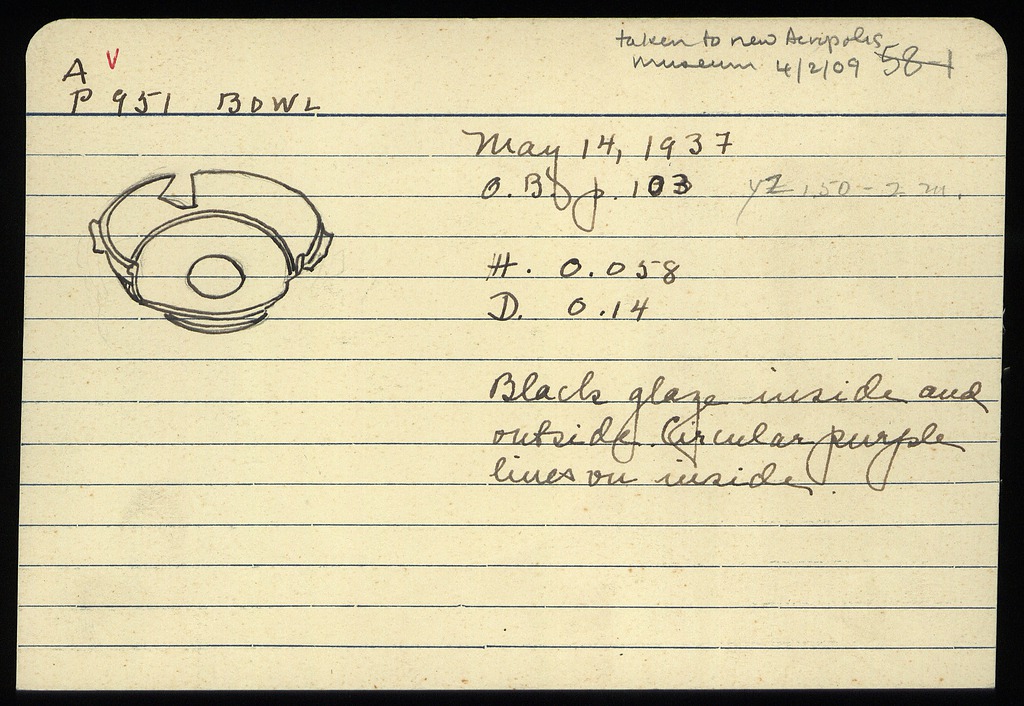 taken to new Acropolis
museum 4/2/09 58-1
A V
P 951 BOWL
May 14, 1937
O.B. p. 103 150-2 m.
H. 0.058
D. 0.14
Black glaze inside and
outside. Circular purple
lines on inside.